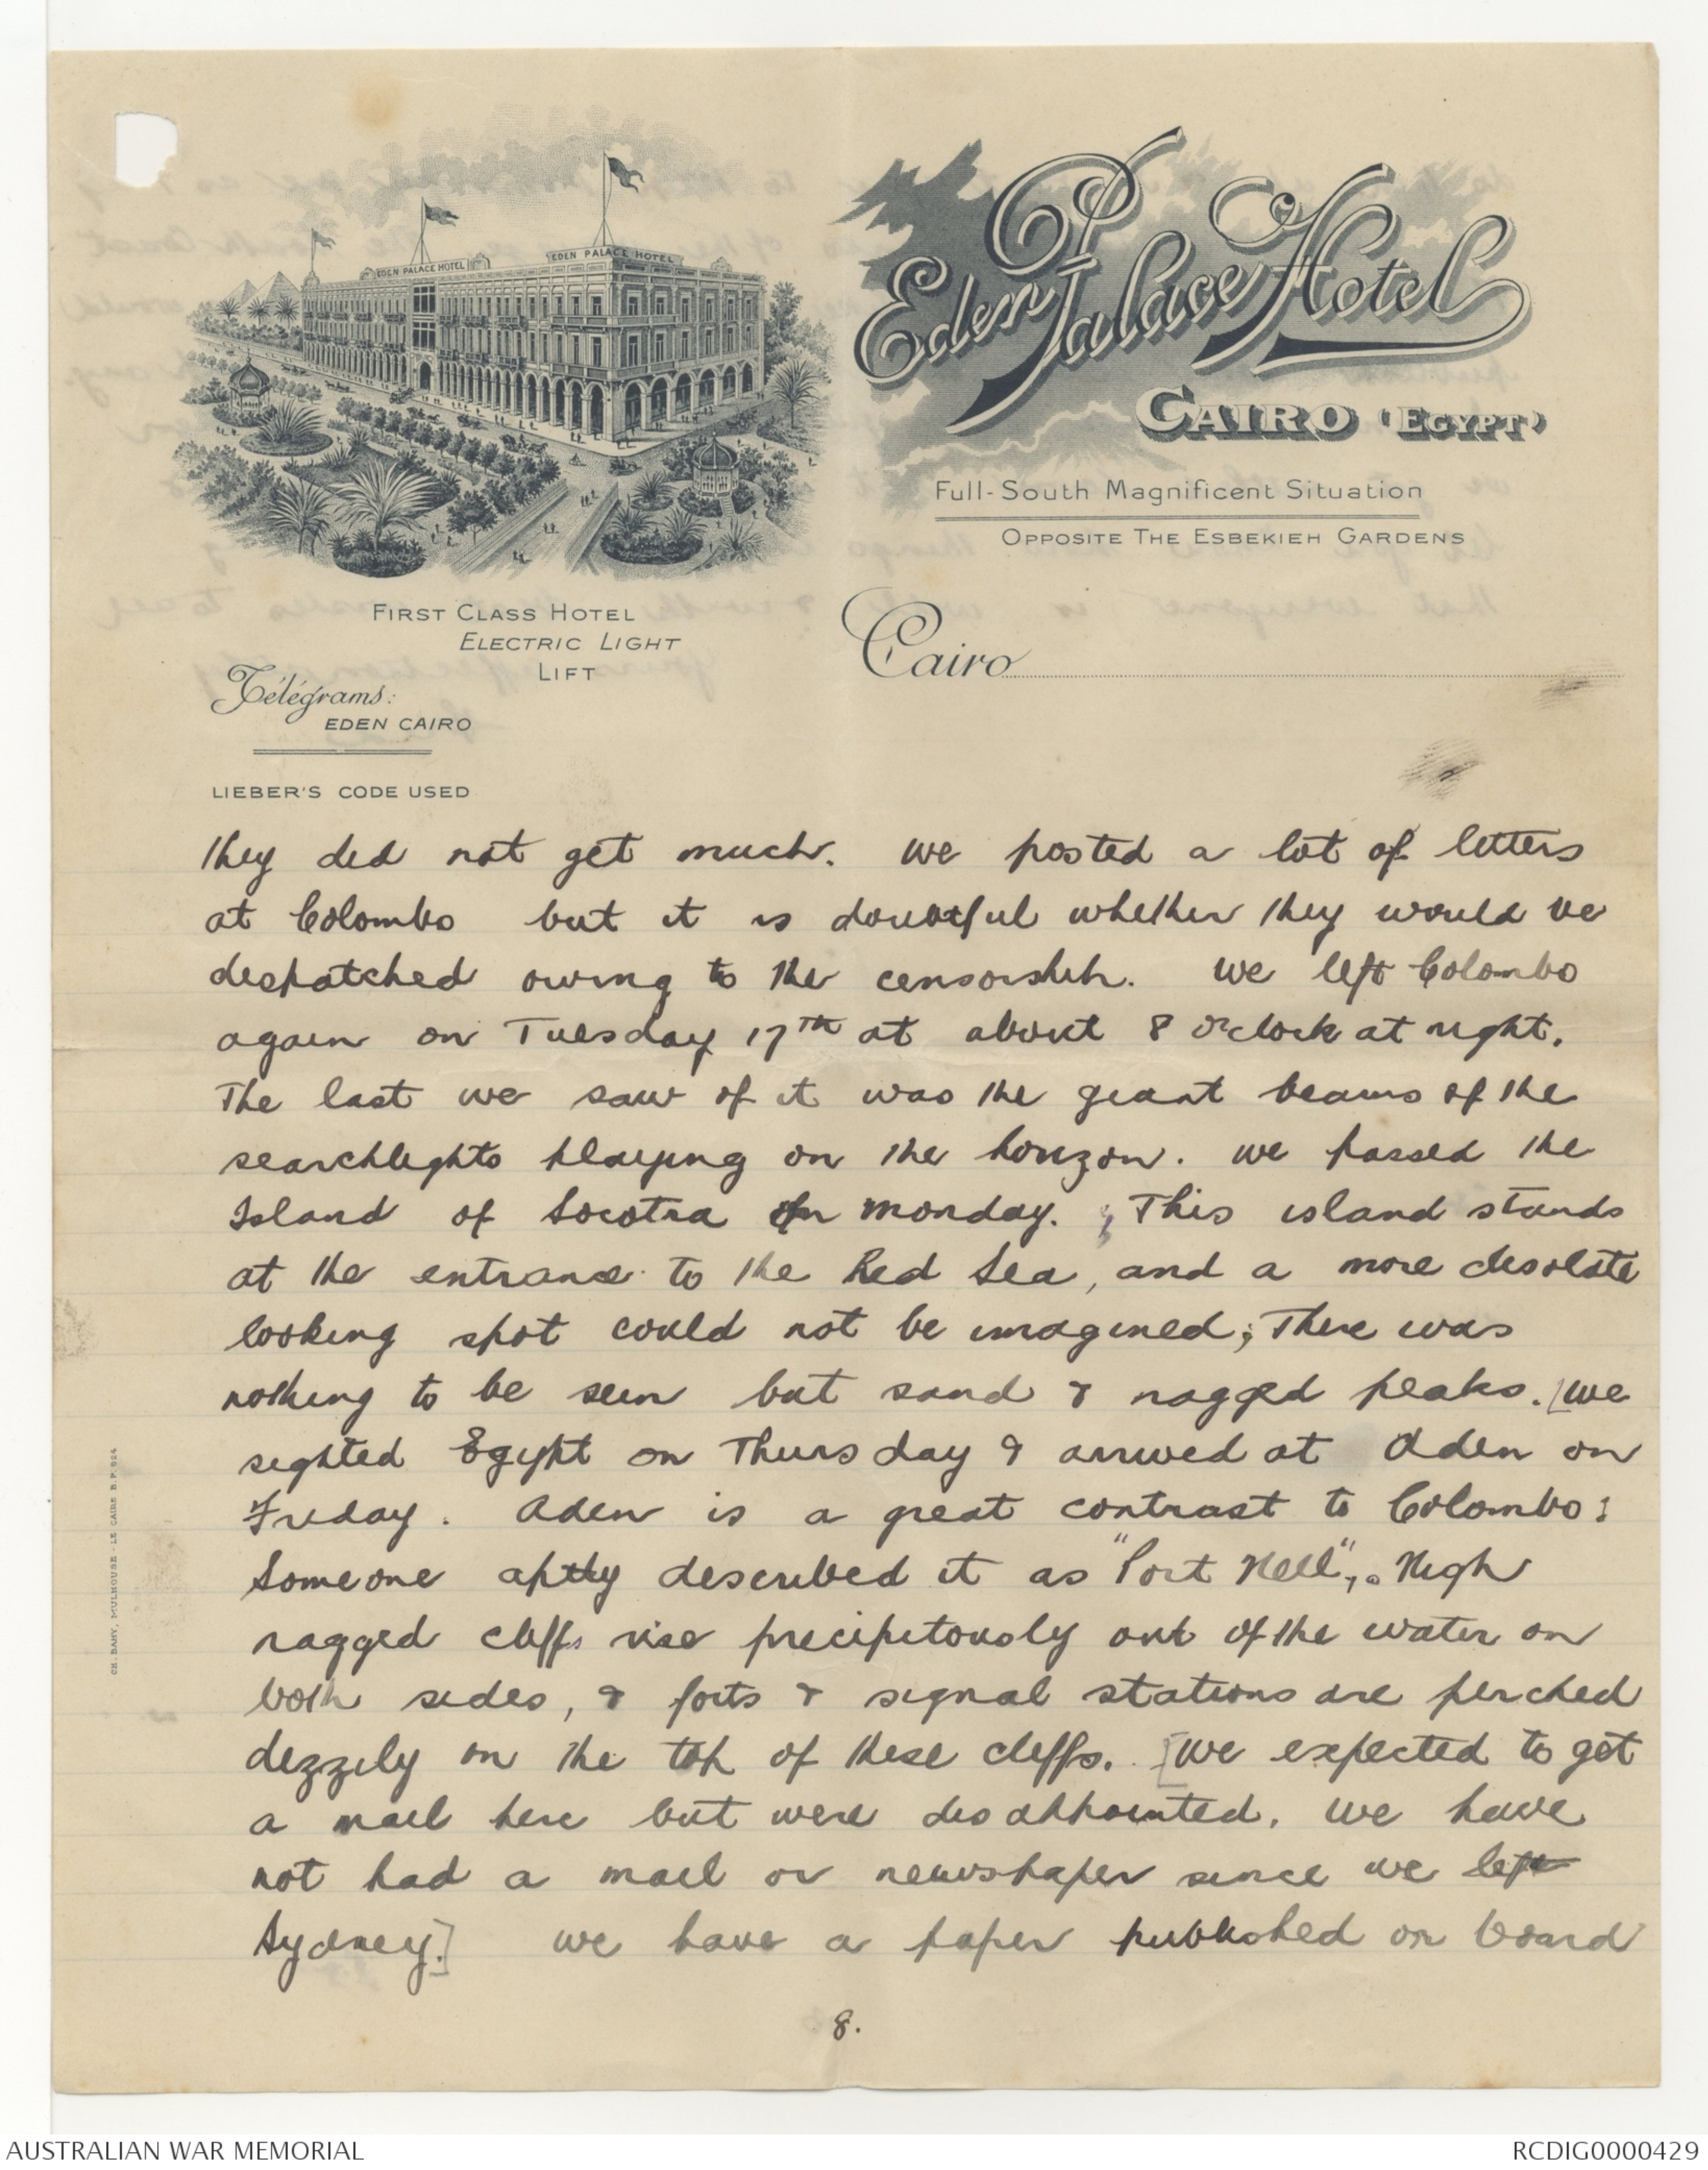 EDEN PALACE HOTEL
EDEN PALACE HOTEL
Eden Palace Hotel
CAIRO (EGYPT)
Full-South Magnificent Situation
OPPOSITE THE ESBEKIEH GARDENS
FIRST CLASS HOTEL
ELECTRIC LIGHT
LIFT
Télégrams:
EDEN CAIRO
LIEBER'S CODE USED
Cairo
they did not get much. We posted a lot of letters
at Colombo but it is doubtful whether they would be
despatched owing to the censorship. We left Colombo
again on Tuesday 17th at about 8 o'clock at night.
The last we saw of it was the giant beams of the
searchlights playing on the horizon. We passed the
Island of Socotra on Monday. This island stands
at the entrance to the Red Sea, and a more desolate
looking spot could not be imagined; There was
nothing to be seen but sand & ragged peaks. [We
sighted Egypt on Thursday & arrived at Aden on
Friday. Aden is a great contrast to Colombo:
Someone aptly described it as "Port Hell",. High
ragged cliffs rise precipitously out of the water on
both sides, & forts & signal stations are perched
dizzily on the top of these cliffs. [We expected to get
a mail here but were disappointed. We have
not had a mail or newspaper since we left
Sydney.] We have a paper published on board
8.
CH. BAHY, MULHOUSE - LE CAIRE B.P. 924
AUSTRALIAN WAR MEMORIAL
RCDIG0000429